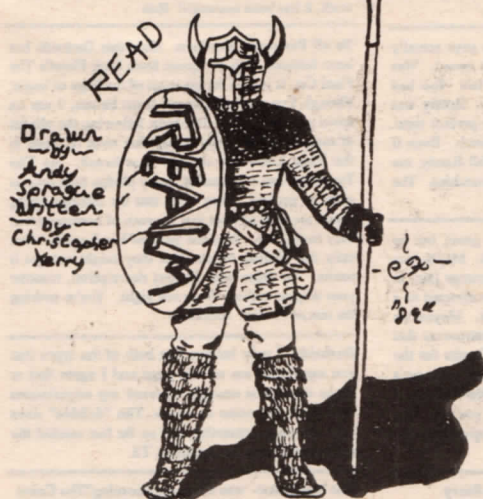 READ
REALM
Drawn
~by~
Andy
Sprague
Written
~by~
Christopher
Kerry
"89"